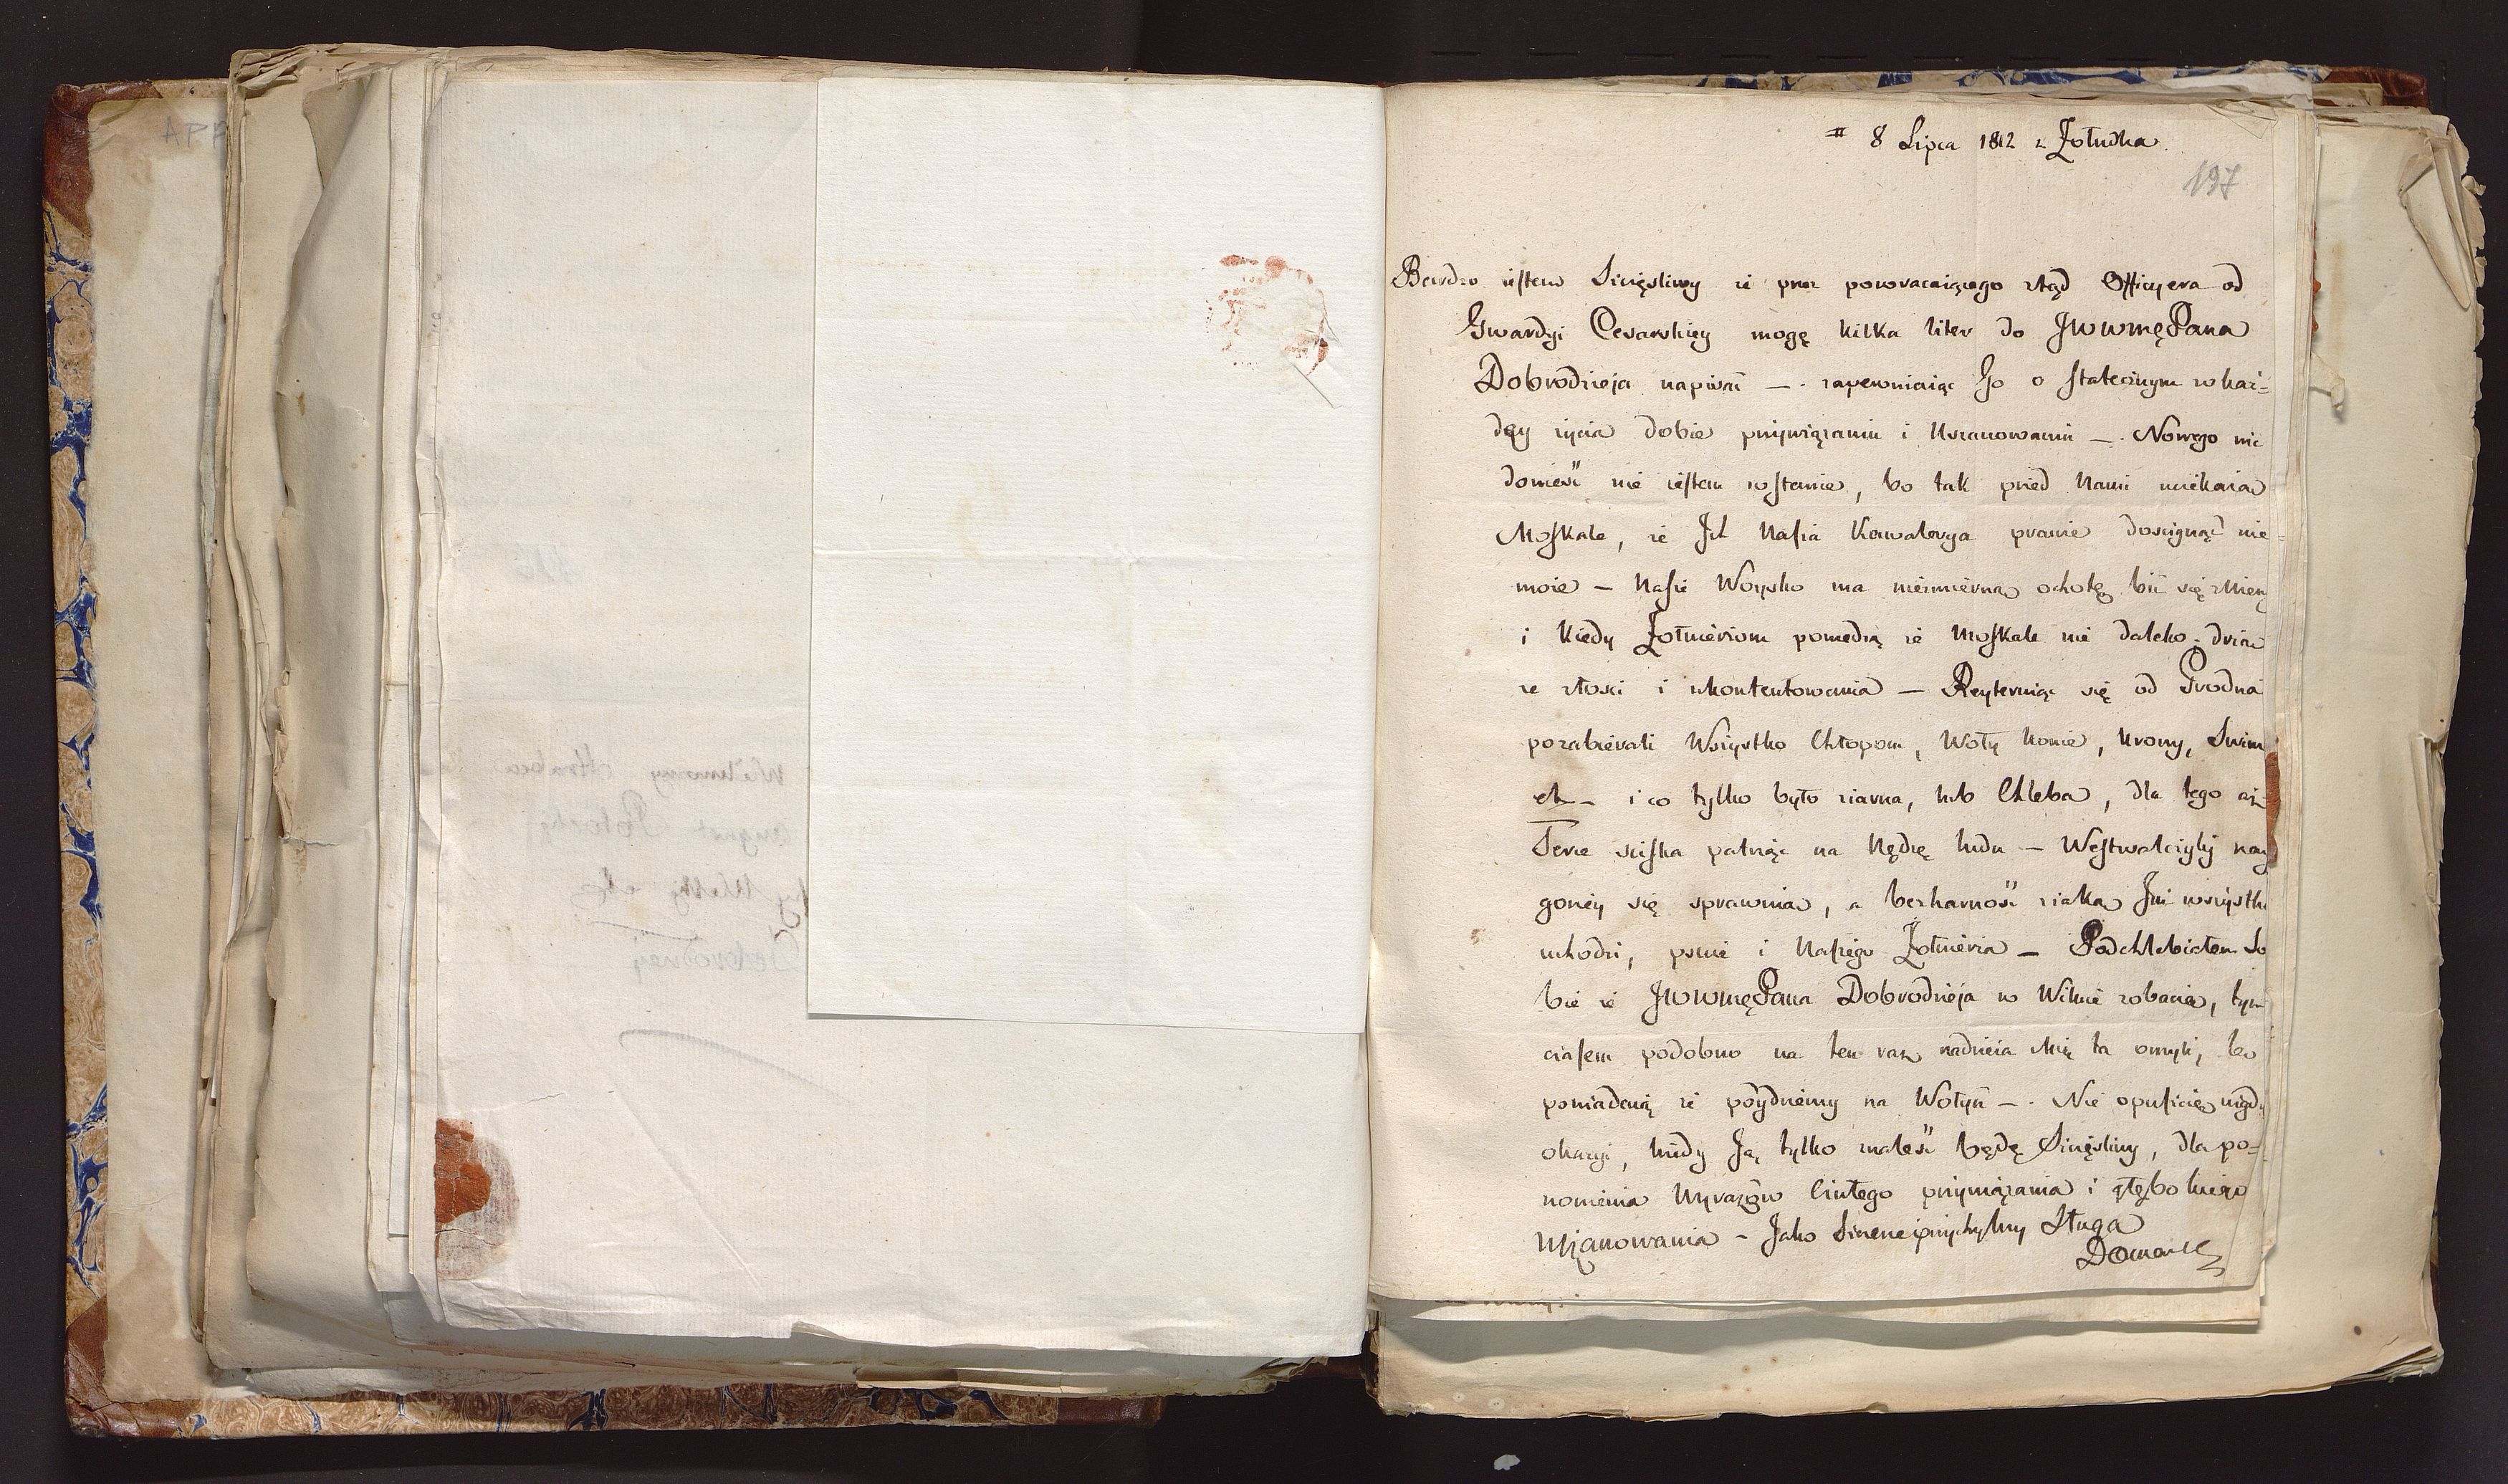 8 Lipca 1812 z Żołudka
197
Bardzo iestem Sczęsliwy że przez powracaiącego ztąd Officyera od
Gwardyi Cesarskiey mogę kilka liter do JWWmęPana
Dobrodzieja napisać —. zapewniaiąc Go o statecznym w każ=
dey życia dobie przywiązaniu i Uszanowaniu —. Nowego nic
donieść nie iestem wstanie, bo tak przed Nami uciekaią
Moskale, że Ich Nasza Kawalerya prawie doscignąć nie=
może — Nasze Woysko ma niezmierną ochotę bić się z Niemi
i kiedy Żołnierzom powiedzą że Moskale nie daleko, drżą
ze złosci i ukontentowania — Reyteruiąc się od Grodna
pozabierali Wszystko Chłopom, Woły Konie, Krowy, Swinie
etc — i co tylko było ziarna, lub Chleba, dla tego aż
Serce sciska patrząc na Nędzę ludu — Westwalczyky nay
gorzey się sprawuią, a bezkarnosc z iaką Im wszystko
uchodzi, psuie i Naszego Żołnierza — Podchlebiałem So
bie że JWWmęPana Dobrodzieja w Wilnie zobaczę, tym
czasem podobno na ten raz nadzieia Mię ta omyli, bo
powiadaią że póydziemy na Wołyń —. Nie opuszczę nigdy
okazyi, kiedy Ją tylko znaleść będę Sczęsliwy, dla po=
nowienia Wyrazów Czułego przywiązania i głębokiego
Uszanowania — Jako Szczerze przychylny Sługa
Wielmozny Hrabia
Potocki